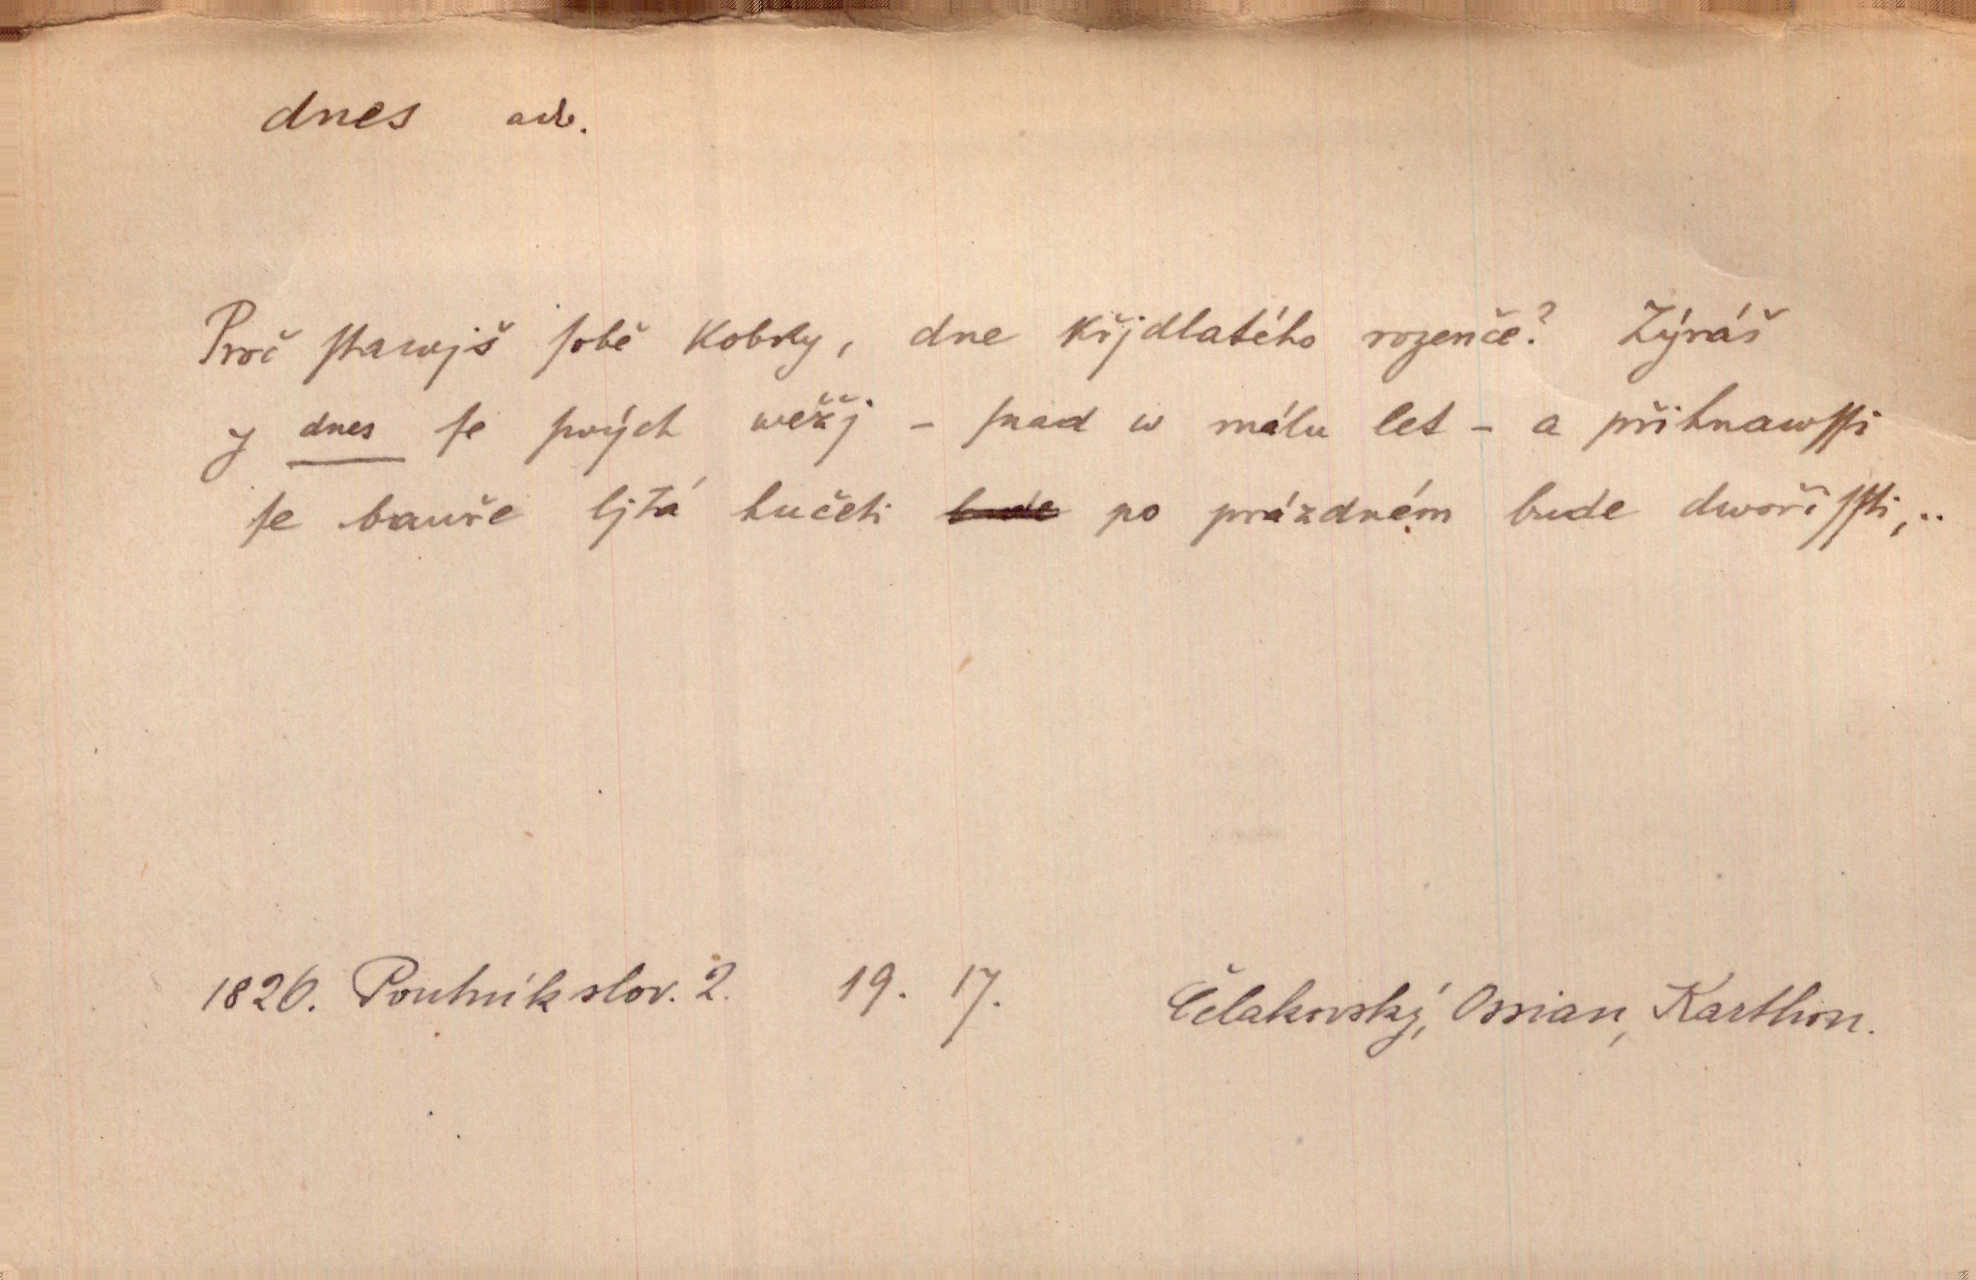 dnes adv.
Proč ſtawjš ſobě kobky, dne křjdlatého rozenče? Zýráš
y dnes ſe ſwých wěžj – ſnad w málu let – a přihnawſſi
ſe bauře ljtá hučeti bude po prázdném bude dwořiſſti,..
1826. Poutník slov. 2. 19. 17. Čelakovský, Ossian, Karthon.